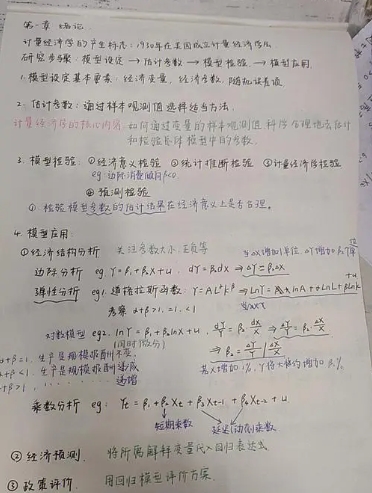 第一章 笔记
计量经济学的产生标志：1930年在美国成立计量经济学会
研究步骤：模型设定 → 估计参数 → 模型检验 → 模型应用
1. 模型设定基本要素：经济变量，经济参数，随机误差项
2. 估计参数：通过样本观测值选择适当方法
计量经济学的核心内容：如何通过变量的样本观测值科学合理地去估计
和检验总体模型中的参数
3. 模型检验 ①经济意义检验 ②统计推断检验 ③计量经济学检验
eg 边际消费倾向β<0
④ 预测检验
① 检验模型参数的估计结果在经济意义上是否合理。
4. 模型应用：
①经济结构分析 关注参数大小、正负等
当ΔX增加1单位，ΔY增加β₂单位
边际分析 eg Y=β₁+β₂X+u dY=β₂dX ⇒ ΔY=β₂ΔX
弹性分析 eg1. 道格拉斯函数：Y=AL^αK^β ⇒ LnY=lnA+αlnL+βlnK+u
考察 α+β>1, =1, <1
对数模型 eg2. lnY=β₁+β₂lnX+u, dY/Y=β₂ dX/X ⇒ ΔY/Y=β₂ ΔX/X
(同时微分)
α+β=1, 生产是规模报酬不变
α+β<1, 生产是规模报酬递减
+β>1, 递增
⇒ β₂=ΔY/Y / ΔX/X
若X增加1%, Y将大约增加β₂%
乘数分析 eg: Yt=β₁+β₂Xt+β₃Xt-1+β₄Xt-2+u
短期乘数 延迟(动态)乘数
② 经济预测 将所需解释变量代入回归表达式
③ 政策评价 用回归模型评价方案